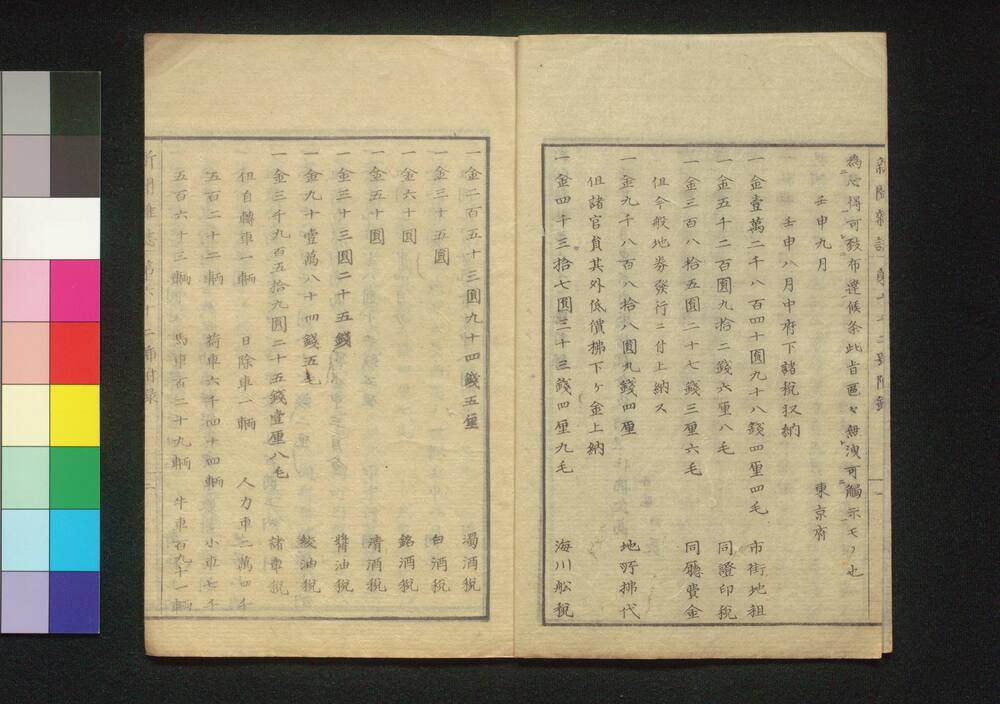 為心得可致布達候条此旨區々無洩可觸示モノ也
壬申九月 東京府
壬申八月中府下諸税収納
一金壹萬二千八百四十圓九十八錢四厘四毛 市街地租
一金五千二百圓九拾二錢六厘八毛 同證印税
一金三百八拾五圓二十七錢三厘六毛 同廳費金
但今般地券發行ニ付上納ス
一金九千八百八拾八圓九錢四厘 地所拂代
但諸官員其外低價拂下ヶ金上納
一金四千三拾七圓三十三錢四厘九毛 海川舩税
一金二百五十三圓九十四錢五厘 濁酒税
一金三十五圓 白酒税
一金六十圓 銘酒税
一金五十圓 清酒税
一金三十三圓二十五錢 醬油税
一金九十壹萬八十四錢五毛 絞油税
一金三千九百五拾九圓二十五錢壹厘八毛 諸車税
但自轉車一輌 日除車一輌 人力車二萬四千
五百二十二輌 荷車六千四十四輌 小車七千
五百六十三輌 馬車百二十九輌 牛車百九十一輌